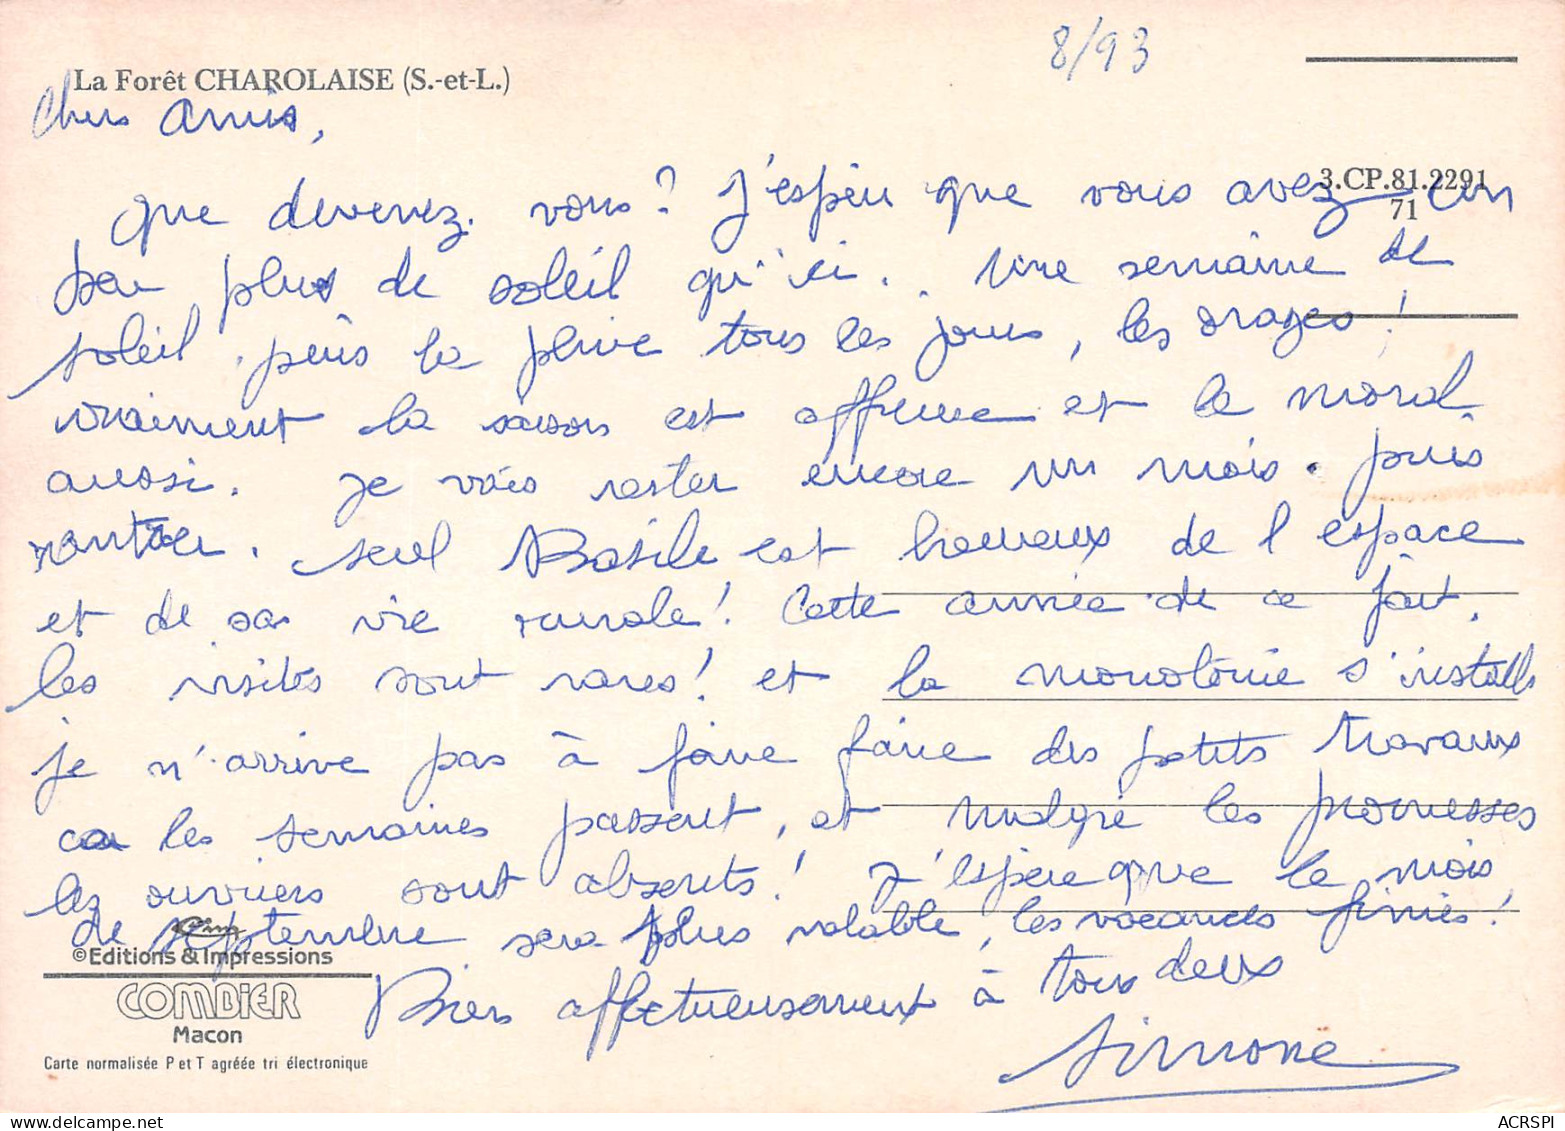 8/93
La Forêt CHAROLAISE (S.-et-L.)
Chers Amis,
3.CP.81.2291
71
que devenez. vous? J'espèr que vous avez un
peu plus de soleil qu'ici.. Une semaine de
soleil. puis la pluie tous les jours, les orages!
vraiment la saison est affreuse et le moral
aussi. Je vais rester encore un mois. puis
rentrer. Seul Basile est heureux de l'espace
et de sa vie rurale! Cette année de ce fait.
les visites sont rares! et la monotonie s'installe
je n'arrive pas à faire faire des petits travaux
car les semaines passent, et malgré les promesses
les ouvriers sont absents! J'espère que le mois
de septembre sera plus valable, les vacances finies!
Bien affectueusement à tous deux
Simone
©Editions & Impressions
COMBIER
Macon
Carte normalisée P et T agréée tri électronique
ACRSPI